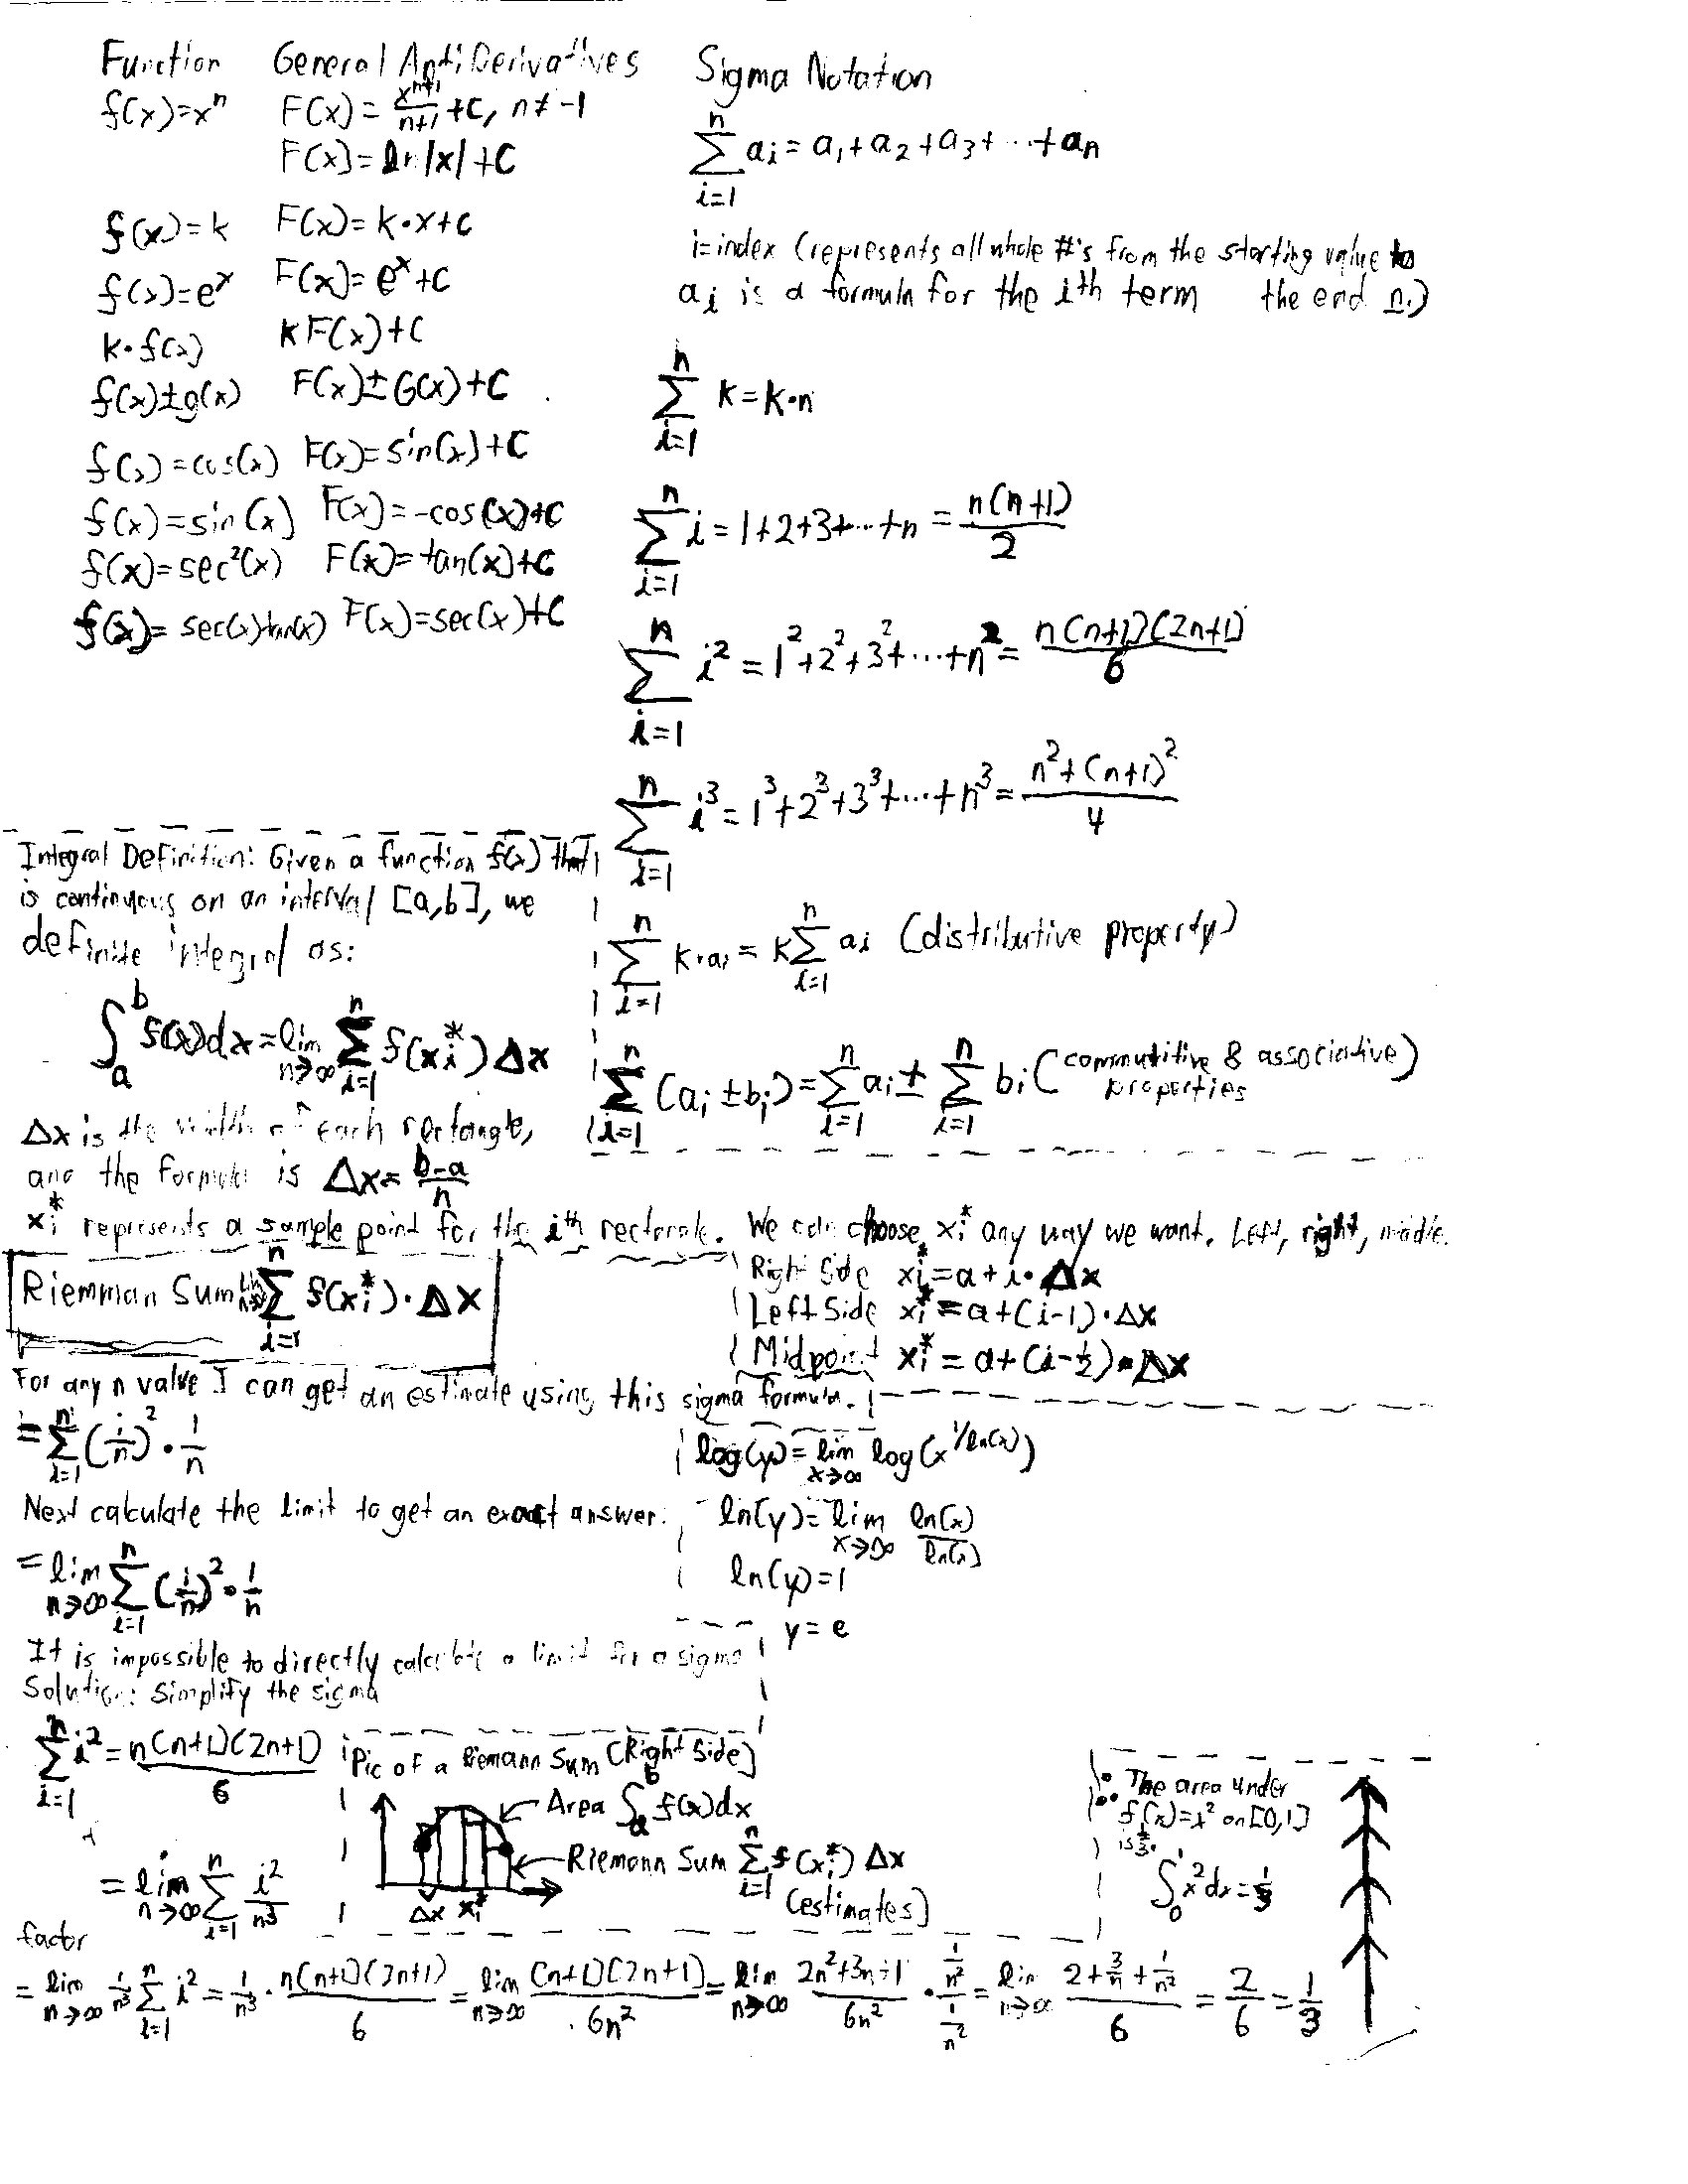 Function General AntiDerivatives
f(x)=x^n F(x)= x^(n+1)/(n+1) +C, n≠-1
F(x)=ln|x|+C
f(x)=k F(x)=k·x+C
f(x)=e^x F(x)=e^x+C
k·f(x) kF(x)+C
f(x)±g(x) F(x)±G(x)+C
f(x)=cos(x) F(x)=sin(x)+C
f(x)=sin(x) F(x)=-cos(x)+C
f(x)=sec²(x) F(x)=tan(x)+C
f(x)=sec(x)tan(x) F(x)=sec(x)+C
Sigma Notation
∑_{i=1}^{n} a_i = a_1+a_2+a_3+···+a_n
i=index (represents all whole #'s from the starting value to
the end n.)
a_i is a formula for the ith term
∑_{i=1}^{n} k=k·n
∑_{i=1}^{n} i=1+2+3+···+n = n(n+1)/2
∑_{i=1}^{n} i²=1²+2²+3²+···+n²= n(n+1)(2n+1)/6
∑_{i=1}^{n} i³=1³+2³+3³+···+n³= n²+(n+1)²/4
∑_{i=1}^{n} k·a_i = k∑_{i=1}^{n} a_i (distributive property)
∑_{i=1}^{n} (a_i ± b_i)=∑_{i=1}^{n} a_i ± ∑_{i=1}^{n} b_i (commutitive & associative)
properties
Integral Definition: Given a function f(x) that
is continuous on an interval [a,b], we
definite integral as:
∫_a^b f(x)dx=lim_{n→∞} ∑_{i=1}^{n} f(x_i*) Δx
Δx is the width of each rectangle,
and the formula is Δx= (b-a)/n
x_i* represents a sample point for the ith rectangle. We can choose x_i* any way we want. Left, right, middle.
Right Side x_i*=a+i·Δx
Left Side x_i*=a+(i-1)·Δx
Midpoint x_i*=a+(i-½)·Δx
Riemman Sum lim_{n→∞} ∑_{i=1}^{n} f(x_i*)·Δx
For any n value I can get an estimate using this sigma formula.
=∑_{i=1}^{n} (i/n)²·1/n
Next calculate the limit to get an exact answer.
=lim_{n→∞} ∑_{i=1}^{n} (i/n)²·1/n
It is impossible to directly calculate a limit for a sigma
Solution: Simplify the sigma
∑_{i=1}^{n} i²= n(n+1)(2n+1)/6
=lim_{n→∞} ∑_{i=1}^{n} i²/n³
log(y)=lim_{x→∞} log(x^{1/ln(x)})
ln(y)=lim_{x→∞} ln(x)/ln(x)
ln(y)=1
y=e
Pic of a Riemann Sum (Right Side)
Area ∫_a^b f(x)dx
Riemann Sum ∑_{i=1}^{n} f(x_i*) Δx
(estimates)
Δx x_i*
∴ The area under
f(x)=x² on [0,1]
is ⅓.
∫_0^1 x²dx=⅓
factor
=lim_{n→∞} 1/n³ ∑_{i=1}^{n} i² = 1/n³ · n(n+1)(2n+1)/6 = lim_{n→∞} (n+1)(2n+1)/6n² = lim_{n→∞} (2n²+3n+1)/6n² · (1/n²)/(1/n²) = lim_{n→∞} (2+3/n+1/n²)/6 = 2/6 = 1/3